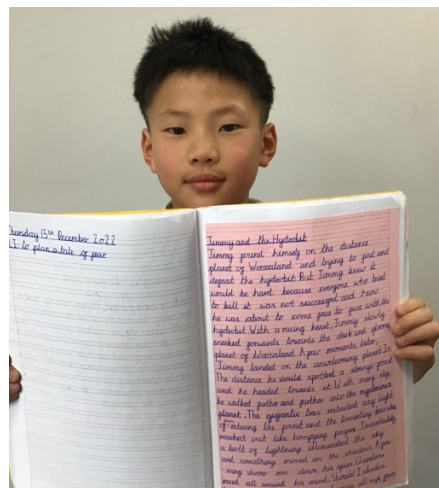 Thursday 15th December 2022
L.I. to plan a tale of fear
Jimmy and the Hydrobit
Jimmy found himself on the distance
planet of Wozzaland and trying to find and
defeat the hydrobit. But Jimmy knew it
would be hard because everyone who tried
to kill it was not successful and now
he was about to come face to face with the
hydrobit. With a racing heart, Jimmy slowly
sneaked forwards towards the dark and gloomy
planet of Wozzaland. A few moments later,
Jimmy landed on the unwelcoming planet. In
The distance he could spotted a strange forest
and he headed towards it. With every step,
he walked further and further into the mysterious
planet. The gigantic trees restricted any light
of entering the forest and the towering branches
reached out like horrifying fingers. Immediately,
a bolt of lightning illuminated the sky
and something moved in the shadows. A
shiver ran down his spine. Questions
raced all around his mind. Should I abandon